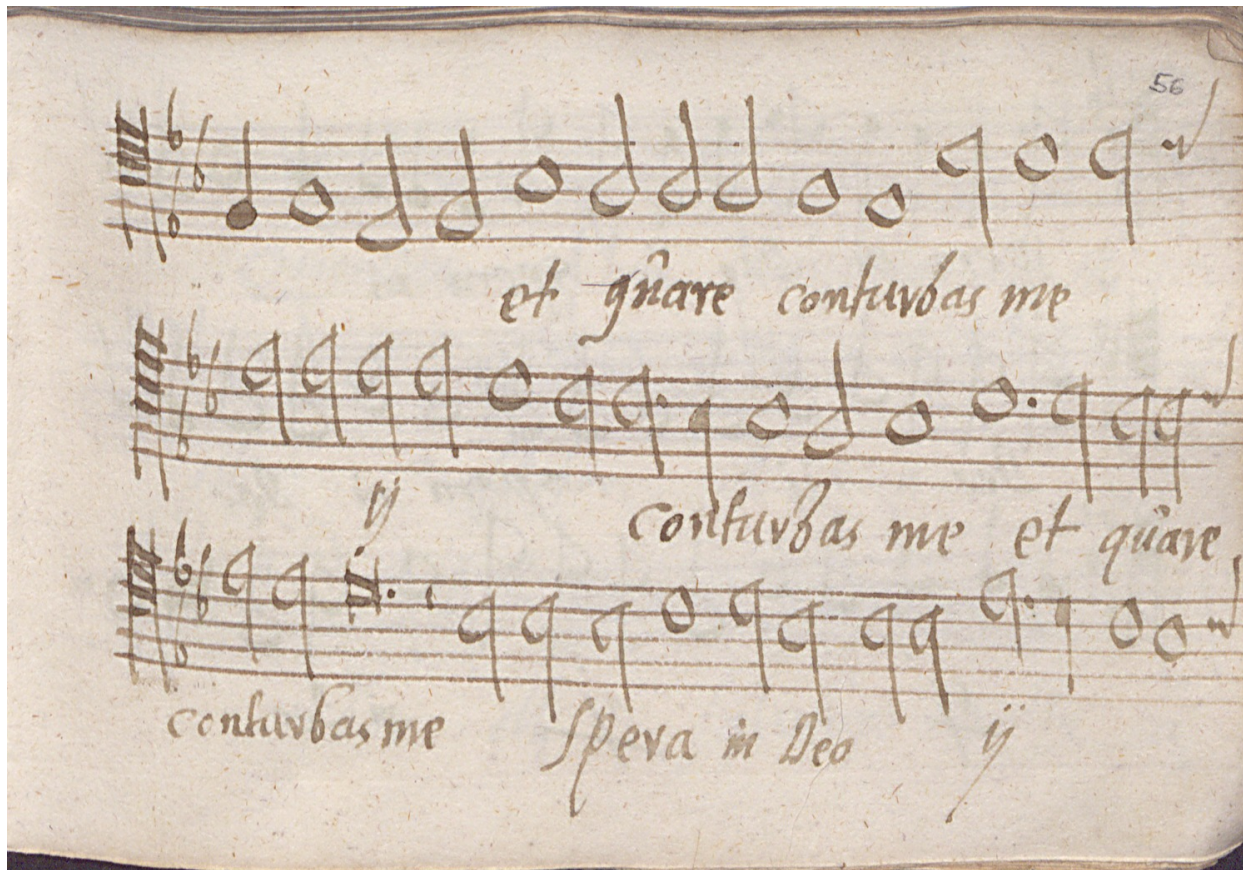 56
et quare conturbas me
ij conturbas me et quare
conturbas me Spera in Deo ij